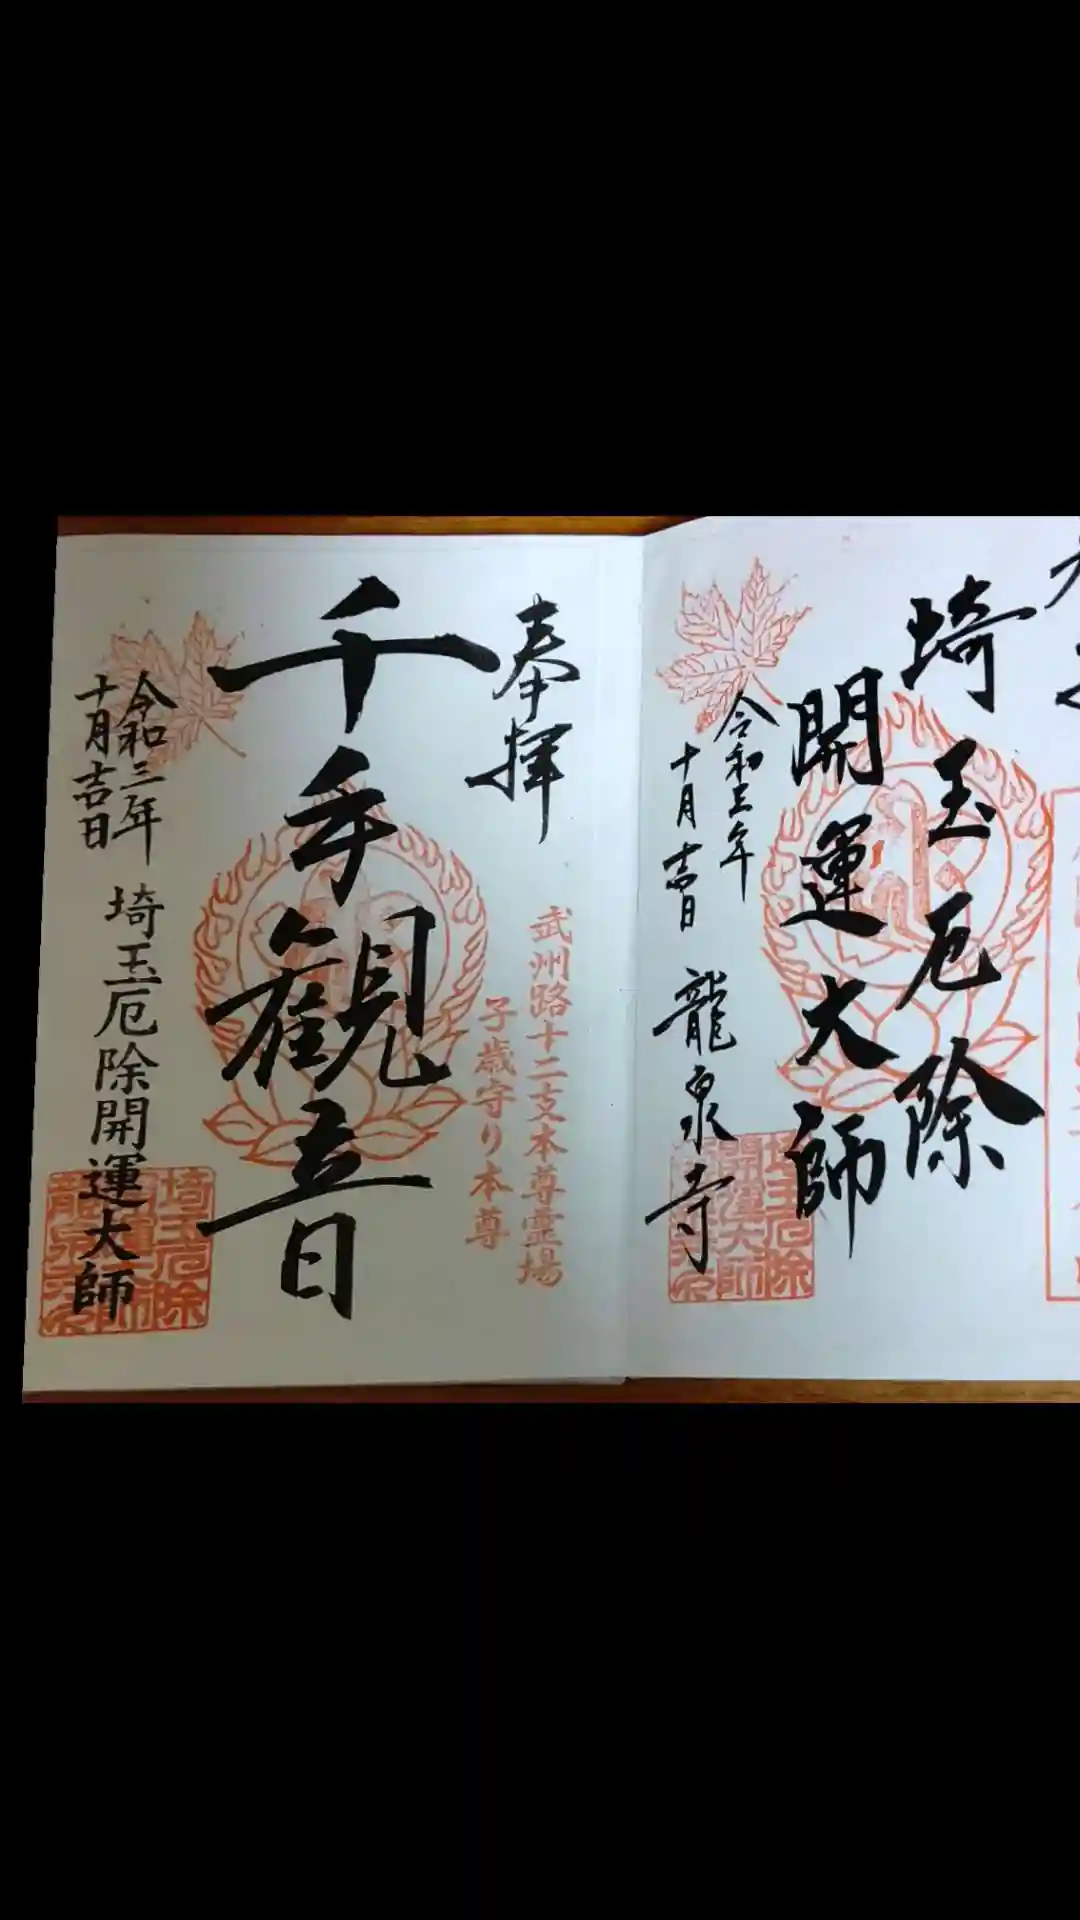 埼玉厄除
開運大師
令和三年
十月吉日
龍泉寺
埼玉厄除
開運大師
奉拝
武州路十二支本尊霊場
子歳守り本尊
千手観音
令和三年
十月吉日
埼玉厄除開運大師
埼玉厄除